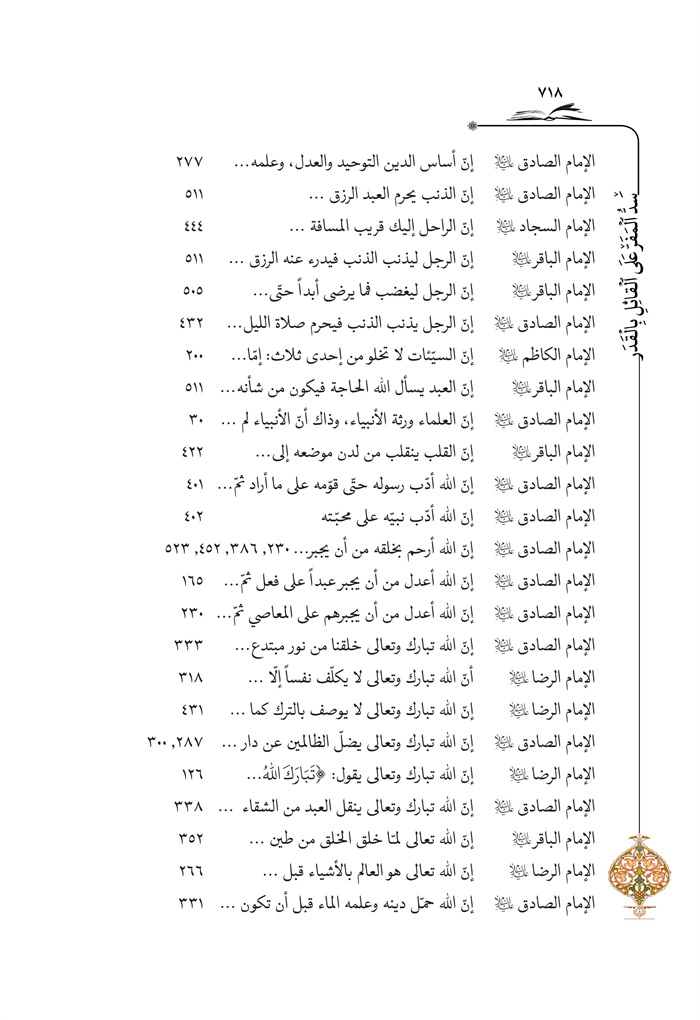 ٧١٨
سَدُّ الْمَفَرِّ عَلَى الْقَائِلِ بِالْقَدَرِ
الإمام الصادق عليه السلام إنّ أساس الدين التوحيد والعدل، وعلمه... ٢٧٧
الإمام الصادق عليه السلام إنّ الذنب يحرم العبد الرزق ... ٥١١
الإمام السجاد عليه السلام إنّ الراحل إليك قريب المسافة ... ٤٤٤
الإمام الباقر عليه السلام إنّ الرجل ليذنب الذنب فيدرء عنه الرزق ... ٥١١
الإمام الباقر عليه السلام إنّ الرجل ليغضب فما يرضى أبداً حتّى... ٥٠٥
الإمام الصادق عليه السلام إنّ الرجل يذنب الذنب فيحرم صلاة الليل... ٤٣٢
الإمام الكاظم عليه السلام إنّ السيّئات لا تخلو من إحدى ثلاث: إمّا... ٢٠٠
الإمام الباقر عليه السلام إنّ العبد يسأل الله الحاجة فيكون من شأنه... ٥١١
الإمام الصادق عليه السلام إنّ العلماء ورثة الأنبياء، وذاك أنّ الأنبياء لم ... ٣٠
الإمام الباقر عليه السلام إنّ القلب ينقلب من لدن موضعه إلى... ٤٢٢
الإمام الصادق عليه السلام إنّ الله أدّب رسوله حتّى قوّمه على ما أراد ثمّ... ٤٠١
الإمام الصادق عليه السلام إنّ الله أدّب نبيّه على محبّته ٤٠٢
الإمام الصادق عليه السلام إنّ الله أرحم بخلقه من أن يجبر... ٢٣٠, ٣٨٦, ٤٥٢, ٥٢٣
الإمام الصادق عليه السلام إنّ الله أعدل من أن يجبر عبداً على فعل ثمّ... ١٦٥
الإمام الصادق عليه السلام إنّ الله أعدل من أن يجبرهم على المعاصي ثمّ... ٢٣٠
الإمام الصادق عليه السلام إنّ الله تبارك وتعالى خلقنا من نور مبتدع... ٣٣٣
الإمام الرضا عليه السلام أنّ الله تبارك وتعالى لا يكلّف نفساً إلّا ... ٣١٨
الإمام الرضا عليه السلام إنّ الله تبارك وتعالى لا يوصف بالترك كما ... ٤٣١
الإمام الصادق عليه السلام إنّ الله تبارك وتعالى يضلّ الظالمين عن دار ... ٢٨٧, ٣٠٠
الإمام الرضا عليه السلام إنّ الله تبارك وتعالى يقول: ﴿تَبَارَكَ اللهُ... ١٢٦
الإمام الصادق عليه السلام إنّ الله تبارك وتعالى ينقل العبد من الشقاء ... ٣٣٨
الإمام الباقر عليه السلام إنّ الله تعالى لمّا خلق الخلق من طين ... ٣٥٢
الإمام الرضا عليه السلام إنّ الله تعالى هو العالم بالأشياء قبل ... ٢٦٦
الإمام الصادق عليه السلام إنّ الله حمّل دينه وعلمه الماء قبل أن تكون ... ٣٣١